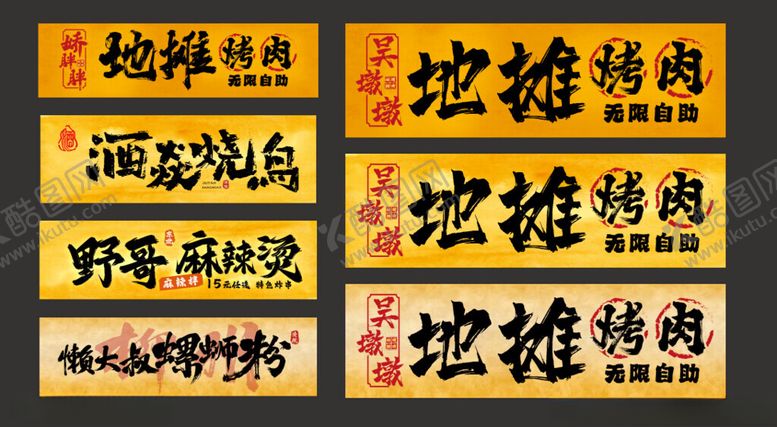 娇胖胖
地摊烤肉
无限自助
酒焱烧鸟
野哥麻辣烫
麻辣拌
15元任选 特色炸串
柳州
懒大叔螺蛳粉
吴墩墩
地摊烤肉
无限自助
吴墩墩
地摊烤肉
无限自助
吴墩墩
地摊烤肉
无限自助